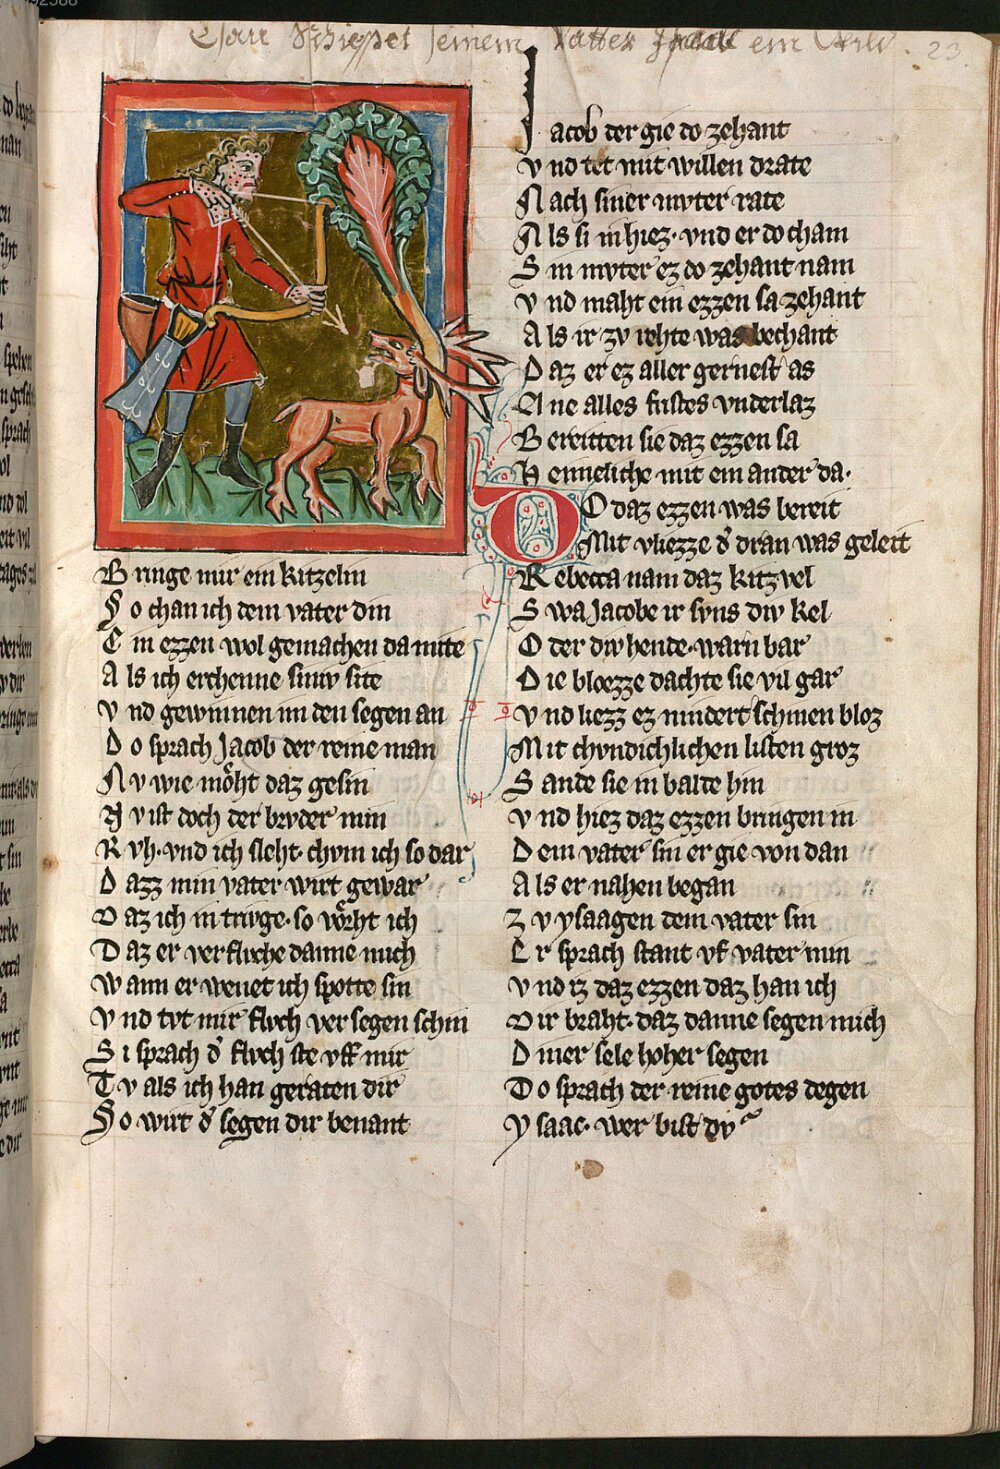 Esau Schiesset seinem Vatter Isaac ein Wild. 23.
Bringe mir ein kitzelin
So chan ich dem vater din
Ein ezzen wol gemachen da mite
Als ich erchenne siniv site
Vnd gewinnen im den segen an
Do sprach Jacob der reine man
Nv wie moͤht daz gesin
Nv ist doch der brvder min
Rvh· vnd ich sleht· chvm ich so dar
Dazz min vater wirt gewar
Daz ich in trivge· so voͤrht ich
Daz er verflvche danne mich
Wann er wenet ich spotte sin
Vnd tvt mir flvch ver segen schin
Si sprach d᾽ flvch ste vff mir
Tv als ich han geraten dir
So wirt d᾽ segen dir benant
Jacob der gie do zehant
Vnd tet mit willen drate
Nach siner mvter rate
Als si in hiez· vnd er do cham
Sin mvter ez do zehant nam
Vnd maht ein ezzen sa zehant
Als ir zv rehte was bechant
Daz er ez aller gernest as
Ane alles fristes vnderlaz
Bereitten sie daz ezzen sa
Henneliche mit ein ander da·
DO daz ezzen was bereit
Mit vliezze d᾽ dran was geleit
Rebecca nam daz kitzvel
Swa Jacobe ir svns div kel
Oder div hende· warn bar
Die bloezze dachte sie vil gar
Vnd liezz ez nindert schinen bloz
Mit chvndichlichen listen groz
Sande sie in balde hin
Vnd hiez daz ezzen bringen in
Dem vater sin er gie von dan
Als er nahen began
Zv ysaagen dem vater sin
Er sprach stant vf vater min
Vnd iz daz ezzen daz han ich
Dir braht· daz danne segen mich
Diner sele hoher segen
Do sprach der reine gotes degen
Ysaac· wer bist dv